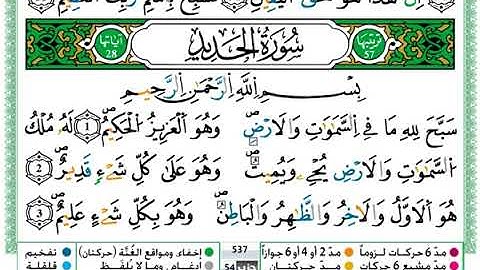 إِنَّ هَٰذَا لَهُوَ حَقُّ الْيَقِينِ فَسَبِّحْ بِاسْمِ رَبِّكَ الْعَظِيمِ
ترتيبها 57 سُورَةُ الحَدِيدِ آياتها 28
بِسْمِ اللَّهِ الرَّحْمَٰنِ الرَّحِيمِ
سَبَّحَ لِلَّهِ مَا فِي السَّمَاوَاتِ وَالْأَرْضِ ۖ وَهُوَ الْعَزِيزُ الْحَكِيمُ 1 لَهُ مُلْكُ
السَّمَاوَاتِ وَالْأَرْضِ ۖ يُحْيِي وَيُمِيتُ ۖ وَهُوَ عَلَىٰ كُلِّ شَيْءٍ قَدِيرٌ 2
هُوَ الْأَوَّلُ وَالْآخِرُ وَالظَّاهِرُ وَالْبَاطِنُ ۖ وَهُوَ بِكُلِّ شَيْءٍ عَلِيمٌ 3
مدّ 6 حركات لزوماً مدّ 2 أو 4 أو 6 جوازاً 537 إخفاء، ومواقع الغُنَّة (حركتان) تفخيم
مدّ مشبع 6 حركات مدّ حركتان 54 إدغام، وما لا يُلفَظ قلقلة